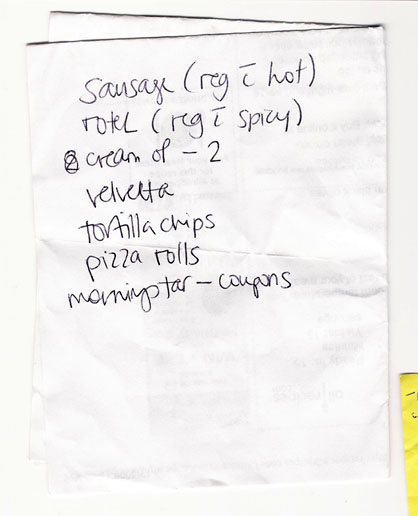 sausage (reg c̄ hot)
rotel (reg c̄ spicy)
cream of - 2
velvetta
tortilla chips
pizza rolls
morningstar - coupons